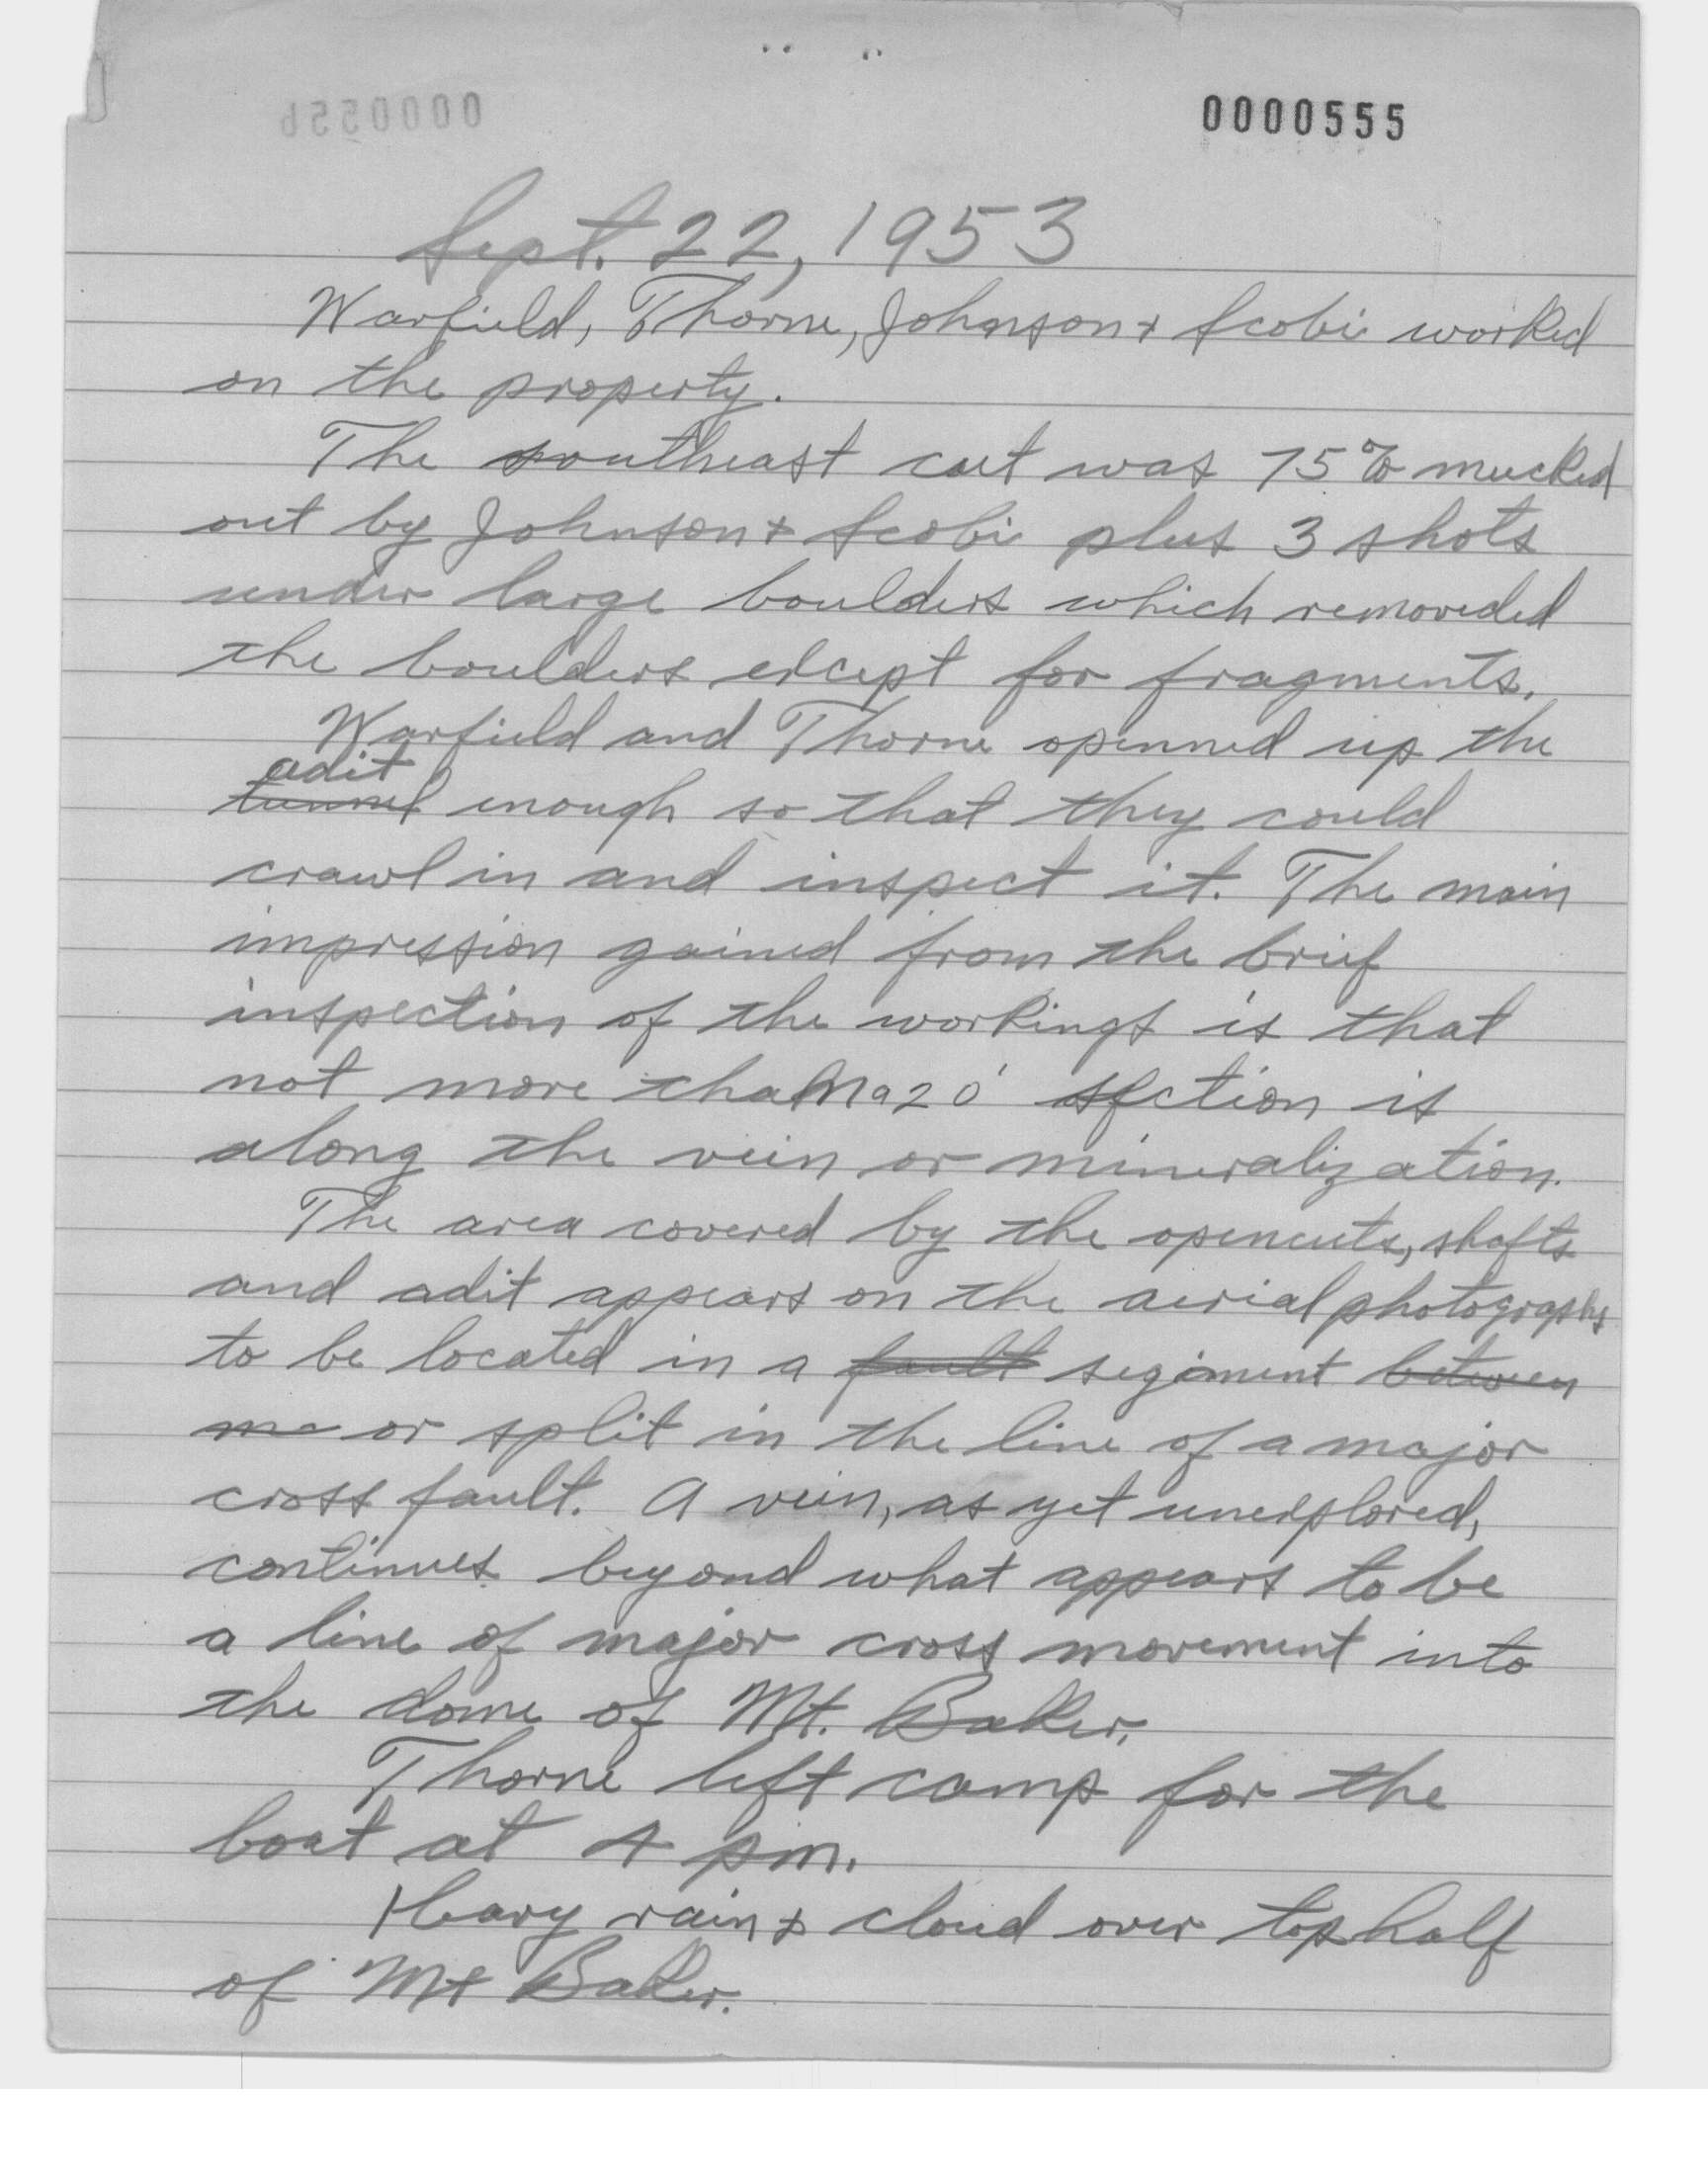 0000555
Sept. 22, 1953
Warfield, Thorne, Johnson + Scobi worked
on the property.
The southeast cut was 75% mucked
out by Johnson + Scobi plus 3 shots
under large boulders which removeded
the boulders except for fragments.
Warfield and Thorne openned up the
adit
tunnel enough so that they could
crawl in and inspect it. The main
impression gained from the brief
inspection of the workings is that
not more than a 20' section is
along the vein or mineralization.
The area covered by the opencuts, shafts
and adit appears on the aerial photographs
to be located in a fault segment between
or split in the line of a major
cross fault. A vein, as yet unexplored,
continues beyond what appears to be
a line of major cross movement into
the dome of Mt. Baker.
Thorne left camp for the
boat at 4 pm.
Heavy rain + cloud over top half
of Mt Baker.